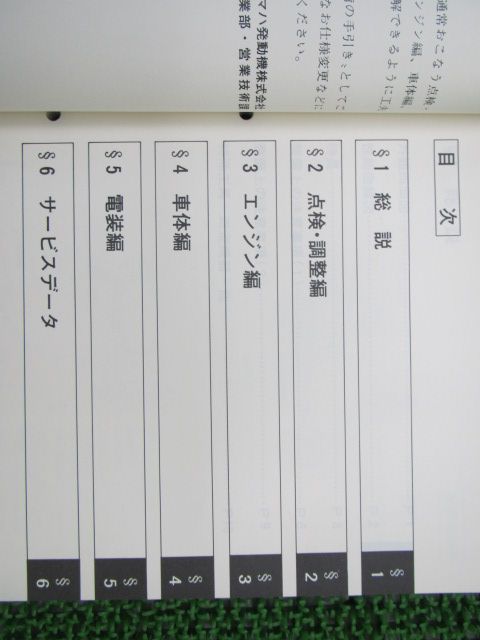 通常おこなう点検・
ンジン編、車体編、
解できるように工夫
の手引き»として
なお仕様変更などに
ください。
マハ発動機株式会
業部・営業技術課
目 次
§1 総 説
§ 1
§2 点検・調整編
§ 2
§3 エンジン編
§ 3
§4 車体編
§ 4
§5 電装編
§ 5
§6 サービスデータ
§ 6